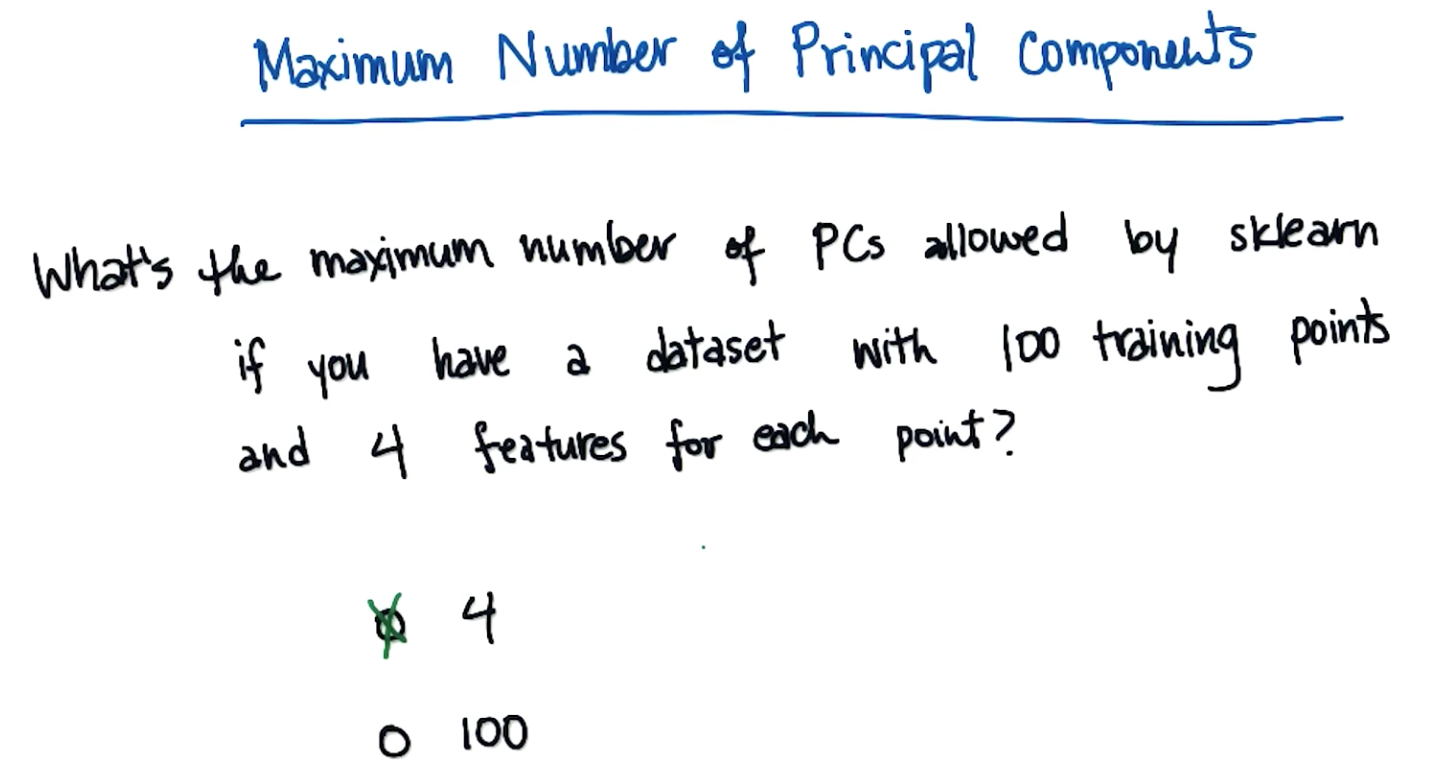 Maximum Number of Principal Components
What's the maximum number of PCs allowed by sklearn
if you have a dataset with 100 training points
and 4 features for each point?
4
100